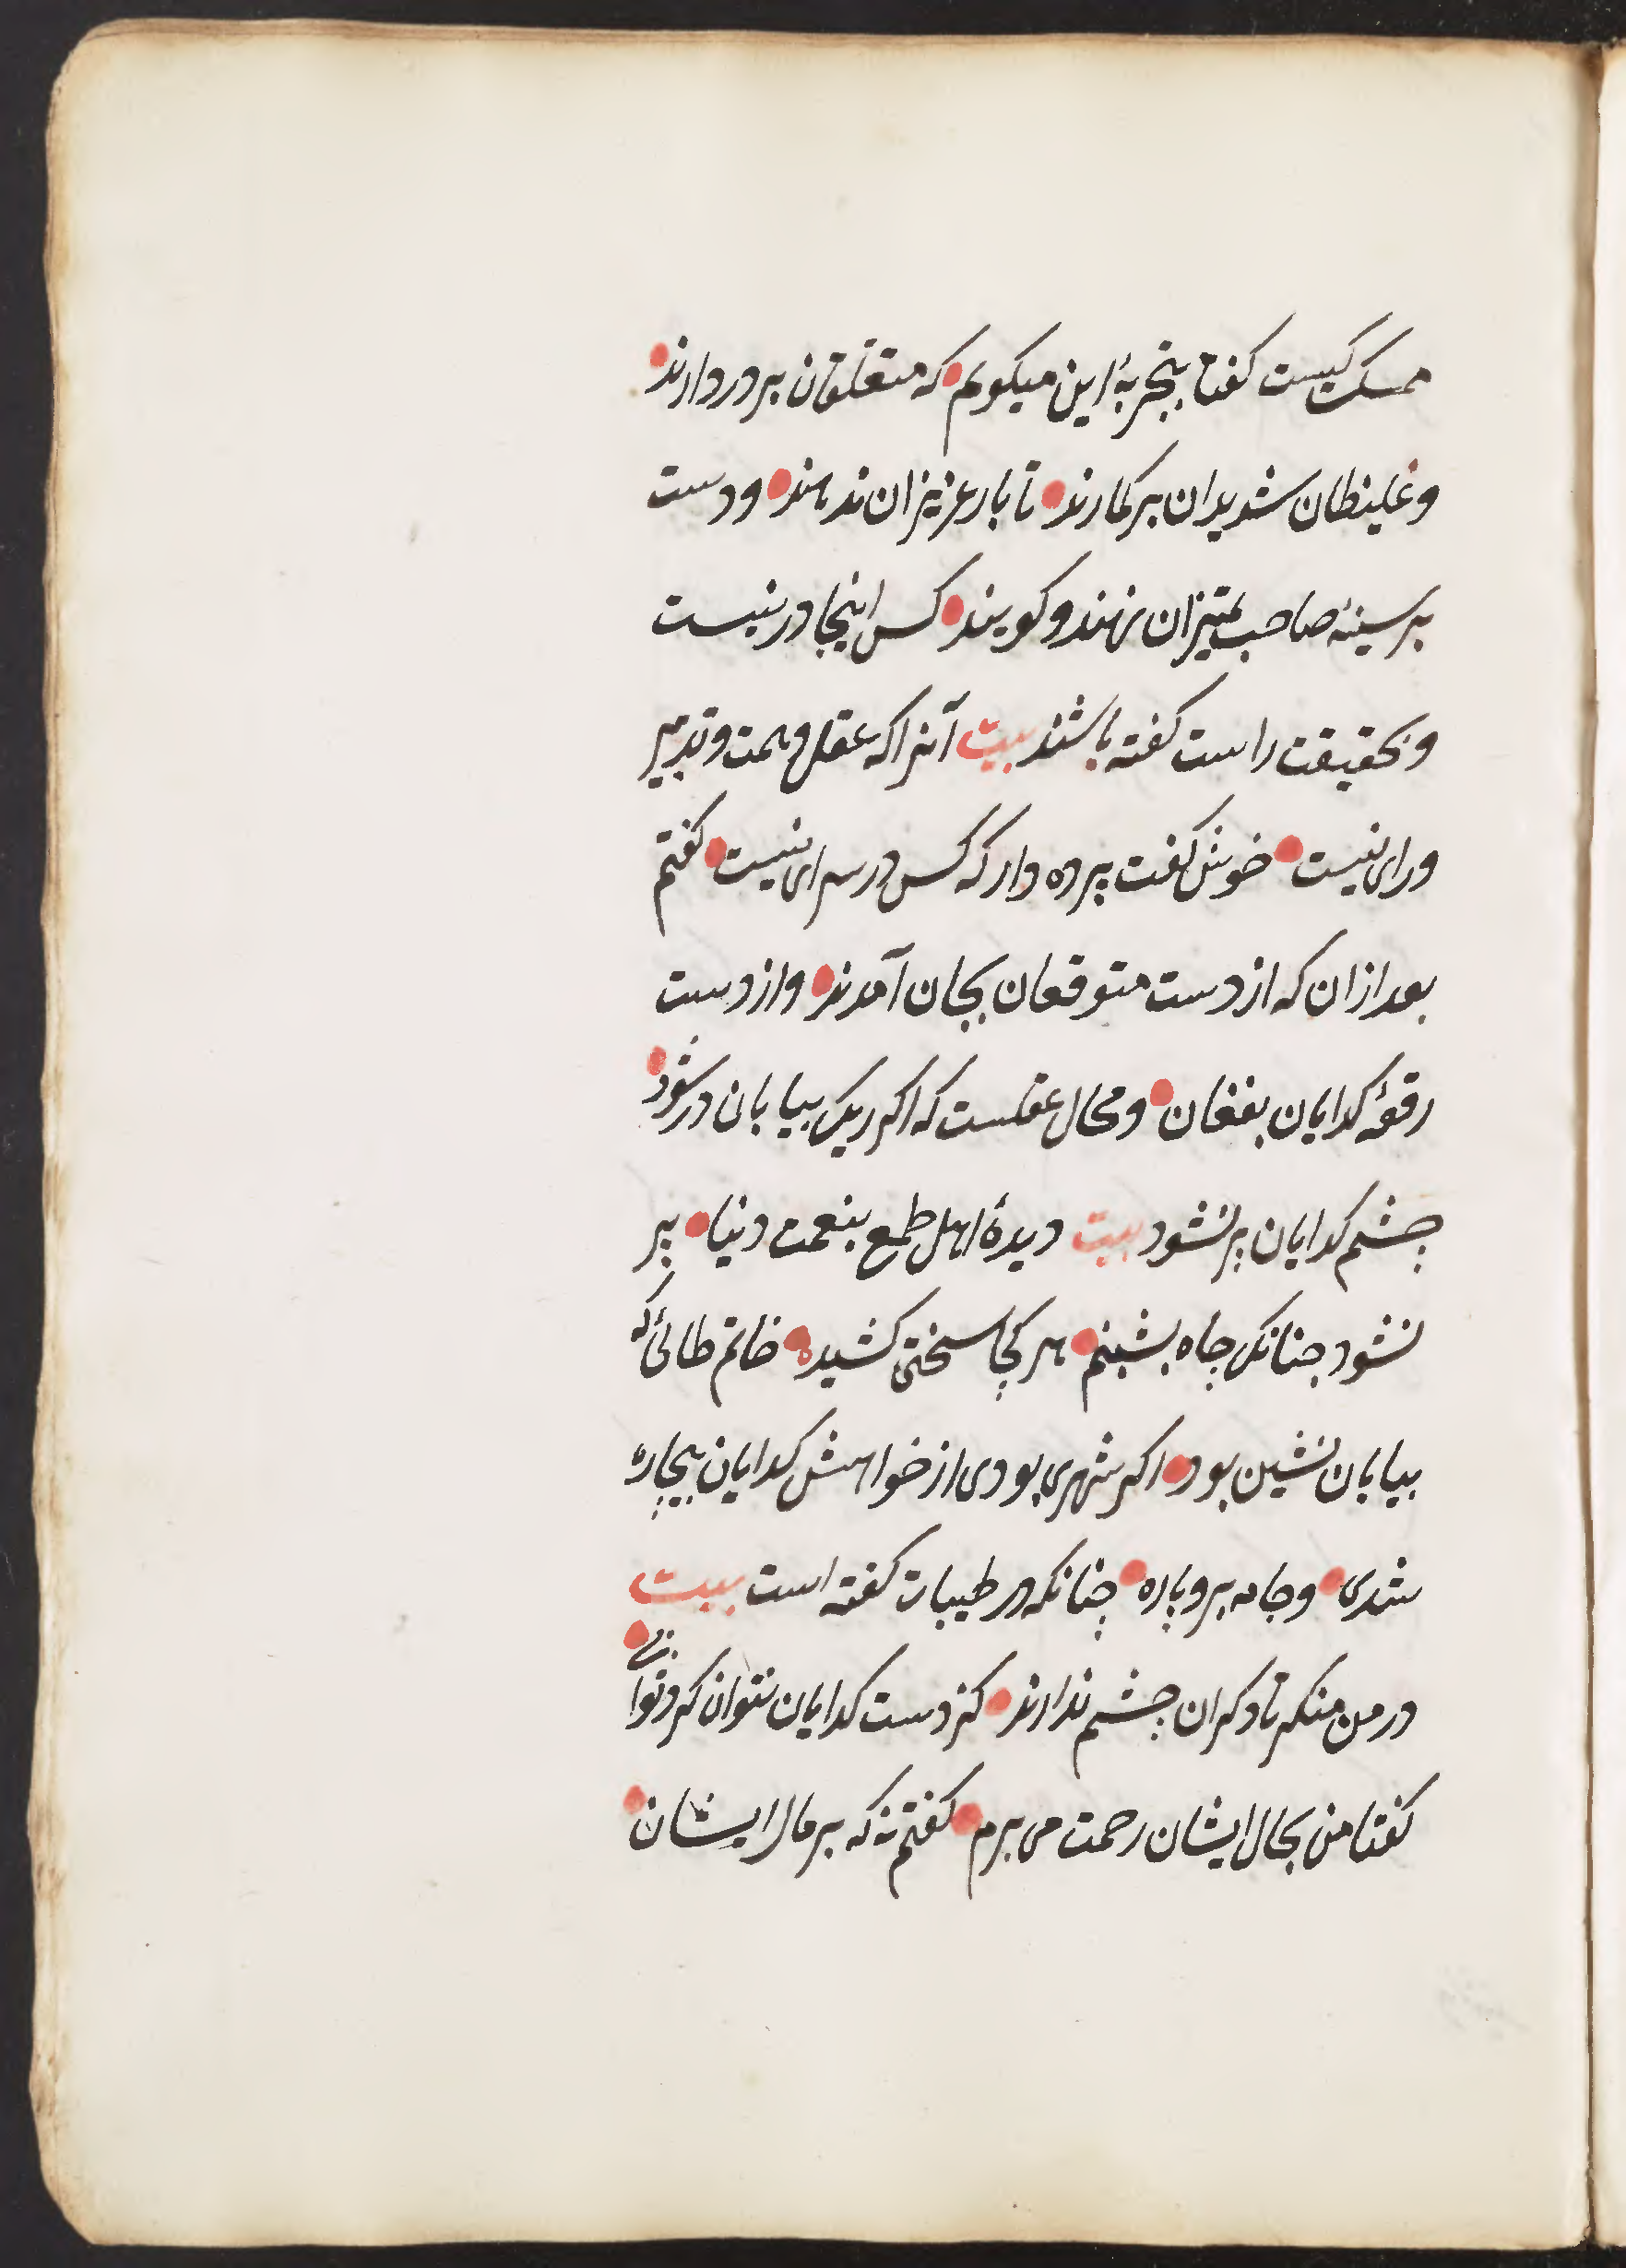 ممسک کیست کفتا بتجربهٔ این میکویم که متعلقان بر در دارند
و غلیظان شدیدان برکمارند تا بار عزیزان ندهند و دست
بر سینهٔ صاحب تمیزان نهند و کویند کس اینجا در نیست
و بحقیقت راست کفته باشند بیت آنرا که عقل و همت و تدبیر
و رای نیست خوش کفت پرده دار که کس در سرای نیست کفتم
بعد ازان که از دست متوقعان بجان آمدند و از دست
رقعهٔ کدایان بفغان و محال عقلست که اکر ریک بیابان در شود
چشم کدایان پر نشود بیت دیدهٔ اهل طمع بنعمت دنیا پر
نشود چنانک چاه بشبنم هر کجا سختی کشیده خاتم طائی که
بیابان نشین بود اکر شهری بودی از خواهش کدایان بیچاره
شدی و جامه برو پاره چنانکه در طیبات کفته است بیت
در من منکر تا دکران چشم ندارند کز دست کدایان نتوان کرد ثوابی
کفتا من بحال ایشان رحمت می برم کفتم نه که بر مال ایشان